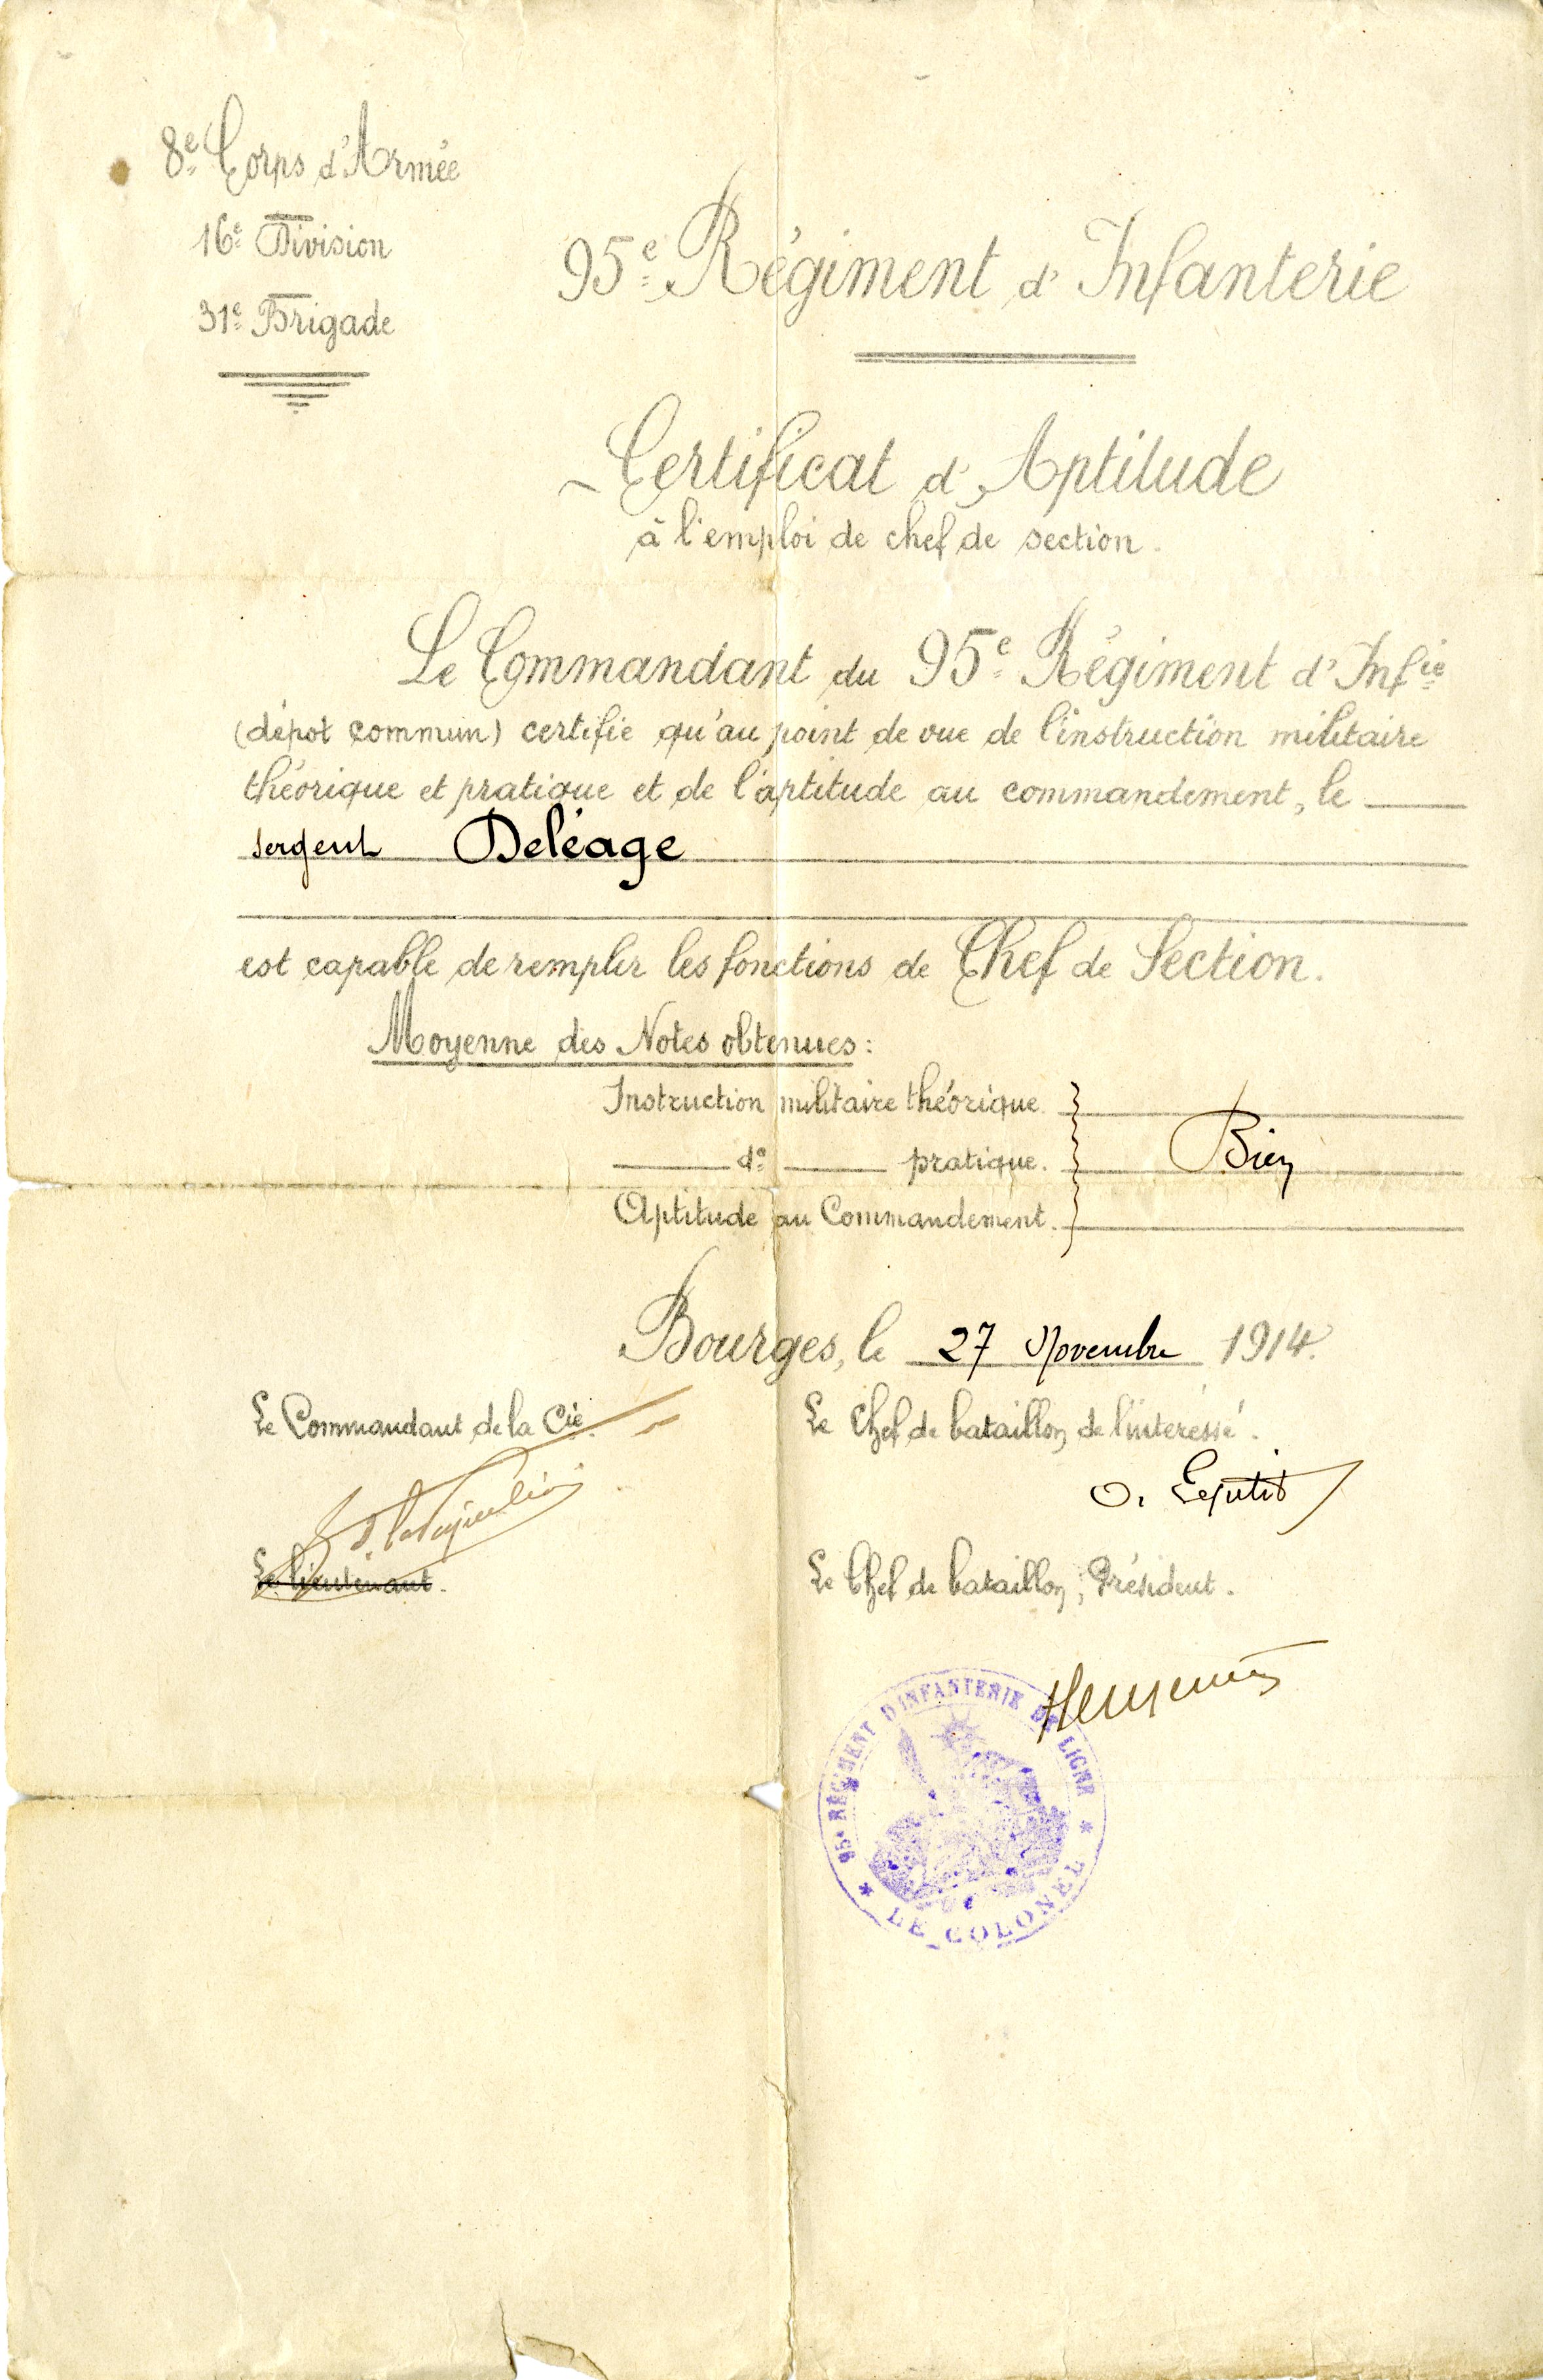 8e Corps d'Armée
16e Division
31e Brigade
95e Régiment d'Infanterie
Certificat d'Aptitude
à l'emploi de chef de section.
Le Commandant du 95e Régiment d'Infie
(dépot commun) certifie qu'au point de vue de l'instruction militaire
théorique et pratique et de l'aptitude au commandement, le
sergent Deléage
est capable de remplir les fonctions de Chef de Section.
Moyenne des Notes obtenues:
Instruction militaire théorique.
do pratique. Bien
Aptitude au Commandement.
Bourges, le 27 Novembre 1914.
Le Commandant de la Cie.
Le Chef de bataillon de l'intéressé.
Le lieutenant.
Le Chef de bataillon, Président.
95e RÉGIMENT D'INFANTERIE DE LIGNE
* LE COLONEL *